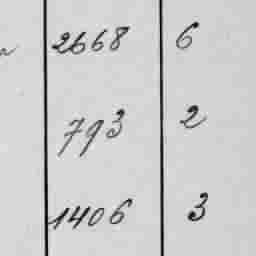 2668 6
793 2
1406 3